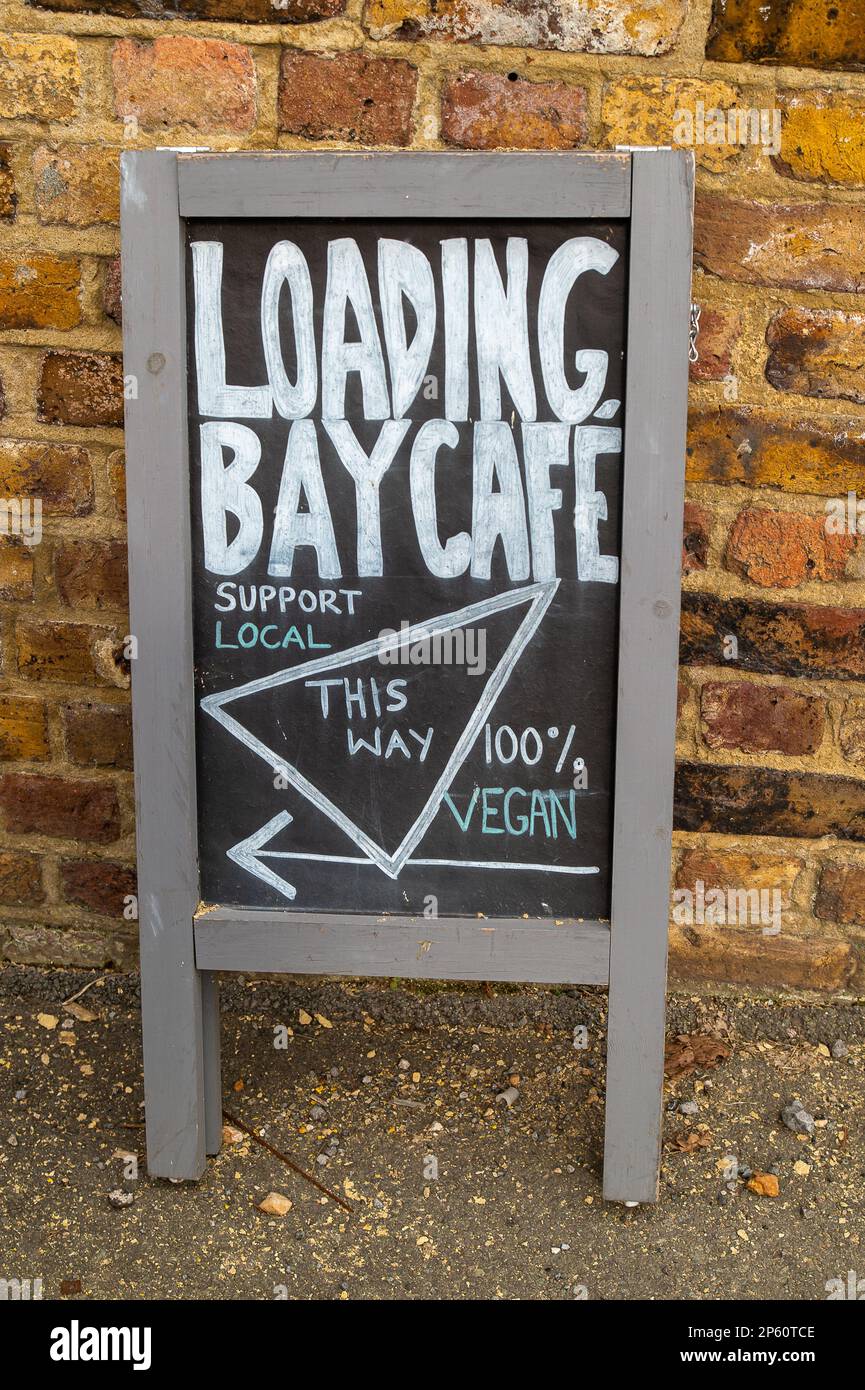 LOADING
BAY CAFÉ
SUPPORT
LOCAL
THIS
WAY
100%
VEGAN
alamy
Image ID: 2P60TCE
www.alamy.com